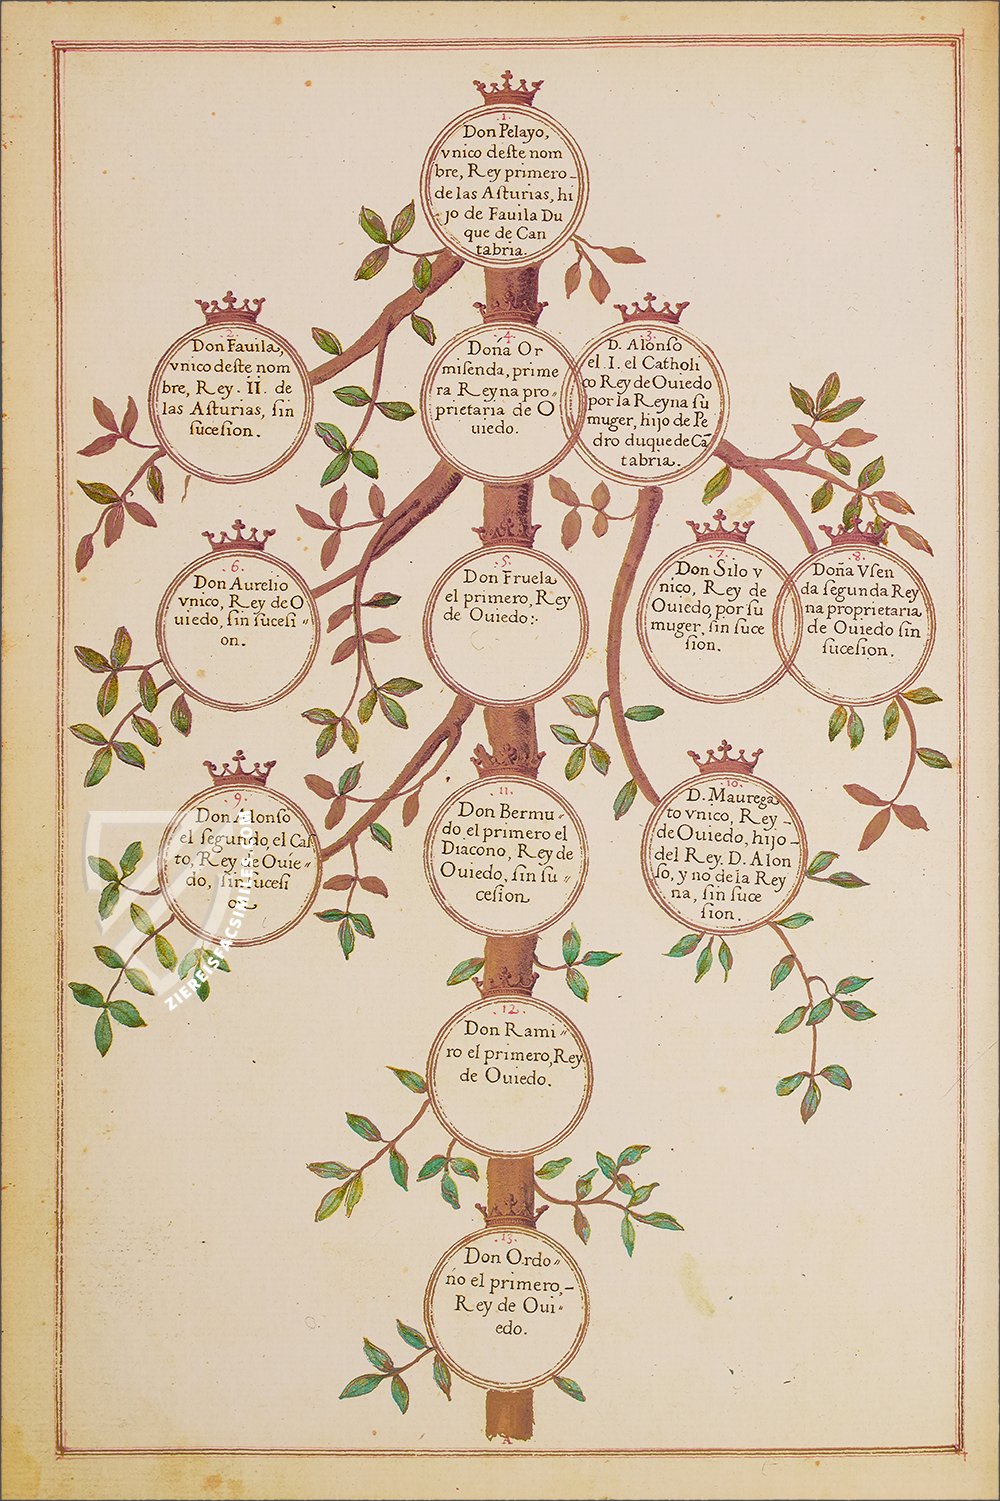 .1.
Don Pelayo,
vnico deſte nom
bre, Rey primero-
de las Aſturias, hi
jo de Fauila Du
que de Can
tabria.
.2.
Don Fauila,
vnico deſte nom
bre, Rey. II. de
las Aſturias, ſin
ſuceſion.
.4.
Doña Or
miſenda, prime
ra Reyna pro-
prietaria de O
uiedo.
.3.
D. Alonſo
el I. el Catholi
co Rey de Ouiedo
por la Reyna ſu
muger, hijo de Pe
dro duque de Cã
tabria.
6.
Don Aurelio
vnico, Rey de O
uiedo, ſin ſuceſi-
on.
.5.
Don Fruela
el primero, Rey
de Ouiedo:
.7.
Don Silo v
nico, Rey de
Ouiedo, por ſu
muger, ſin ſuce
ſion.
.8.
Doña Vſen
da ſegunda Rey
na proprietaria
de Ouiedo ſin
ſuceſion.
.9.
Don Alonſo
el ſegundo, el Caſ
to, Rey de Ouie-
do, ſin ſuceſi
on
.11.
Don Bermu-
do el primero el
Diacono, Rey de
Ouiedo, ſin ſu-
ceſion
.10.
D. Maurega
to vnico, Rey-
de Ouiedo, hijo-
del Rey. D. Alon
ſo, y no de la Rey
na, ſin ſuce
ſion.
.12.
Don Rami-
ro el primero, Rey
de Ouiedo.
.13.
Don Ordo-
ño el primero,-
Rey de Oui-
edo.
A
ZIEREISFACSIMILES.COM